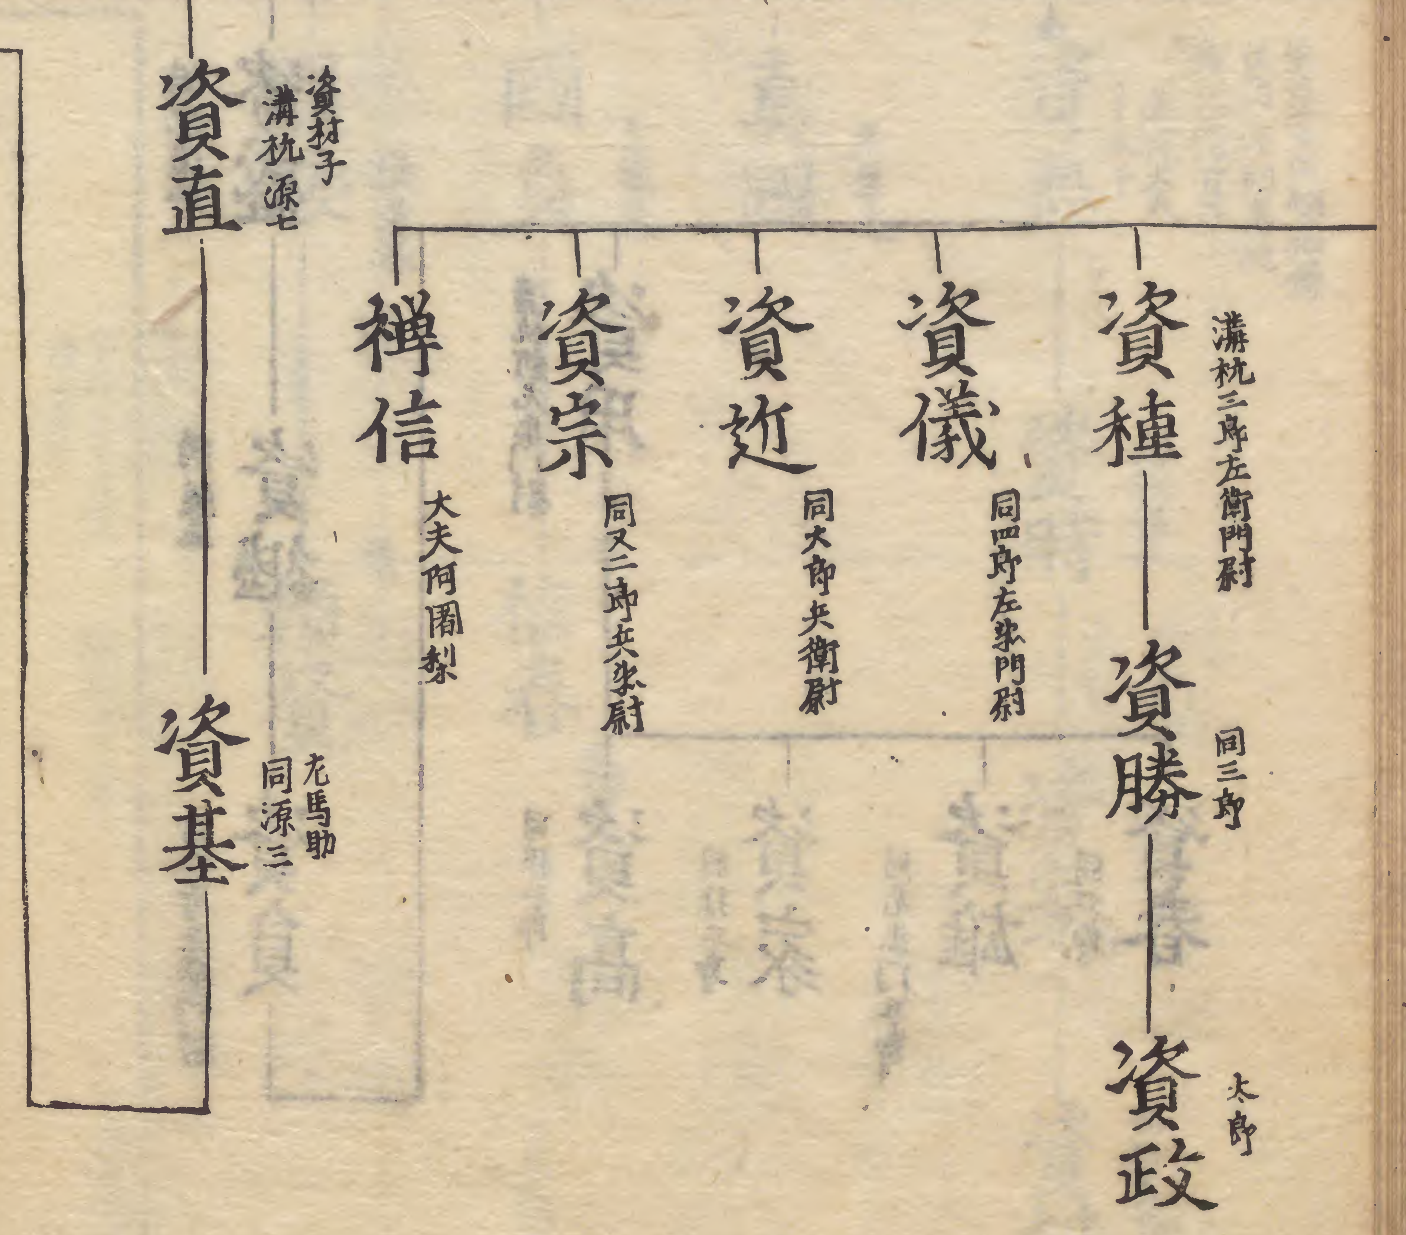 溝杭三郎左衛門尉
資種
同三郎
資勝
太郎
資政
同四郎左衛門尉
資儀
同大郎兵衛尉
資近
同又二郎兵衛尉
資宗
大夫阿闍梨
禅信
資材子
溝杭源七
資直
左馬助
同源三
資基